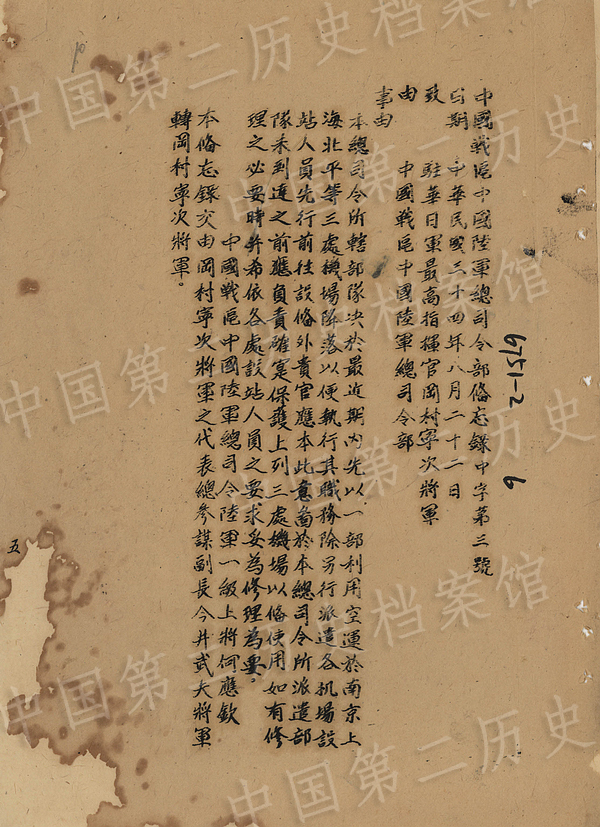 6751-2 6
中國戰區中國陸軍總司令部備忘錄中字第三號
日期 中華民國三十四年八月二十二日
致 駐華日軍最高指揮官岡村寧次將軍
由 中國戰區中國陸軍總司令部
事由
本總司令所轄部隊決於最近期內先以一部利用空運於南京上
海北平等三處機場降落以便執行其職務除另行派遣各机場設
站人員先行前往設備外貴官應本此意圖於本總司令所派遣部
隊未到達之前應負責確寔保護上列三處機場以備使用如有修
理之必要時并希依各處設站人員之要求妥為修理為要。
中國戰區中國陸軍總司令陸軍一級上將何應欽
本備忘錄交由岡村寧次將軍之代表總參謀副長今井武夫將軍
轉岡村寧次將軍。
五
中国第二历史档案馆
中国第二历史档案馆
中国第二历史档案馆
中国第二历史档案馆